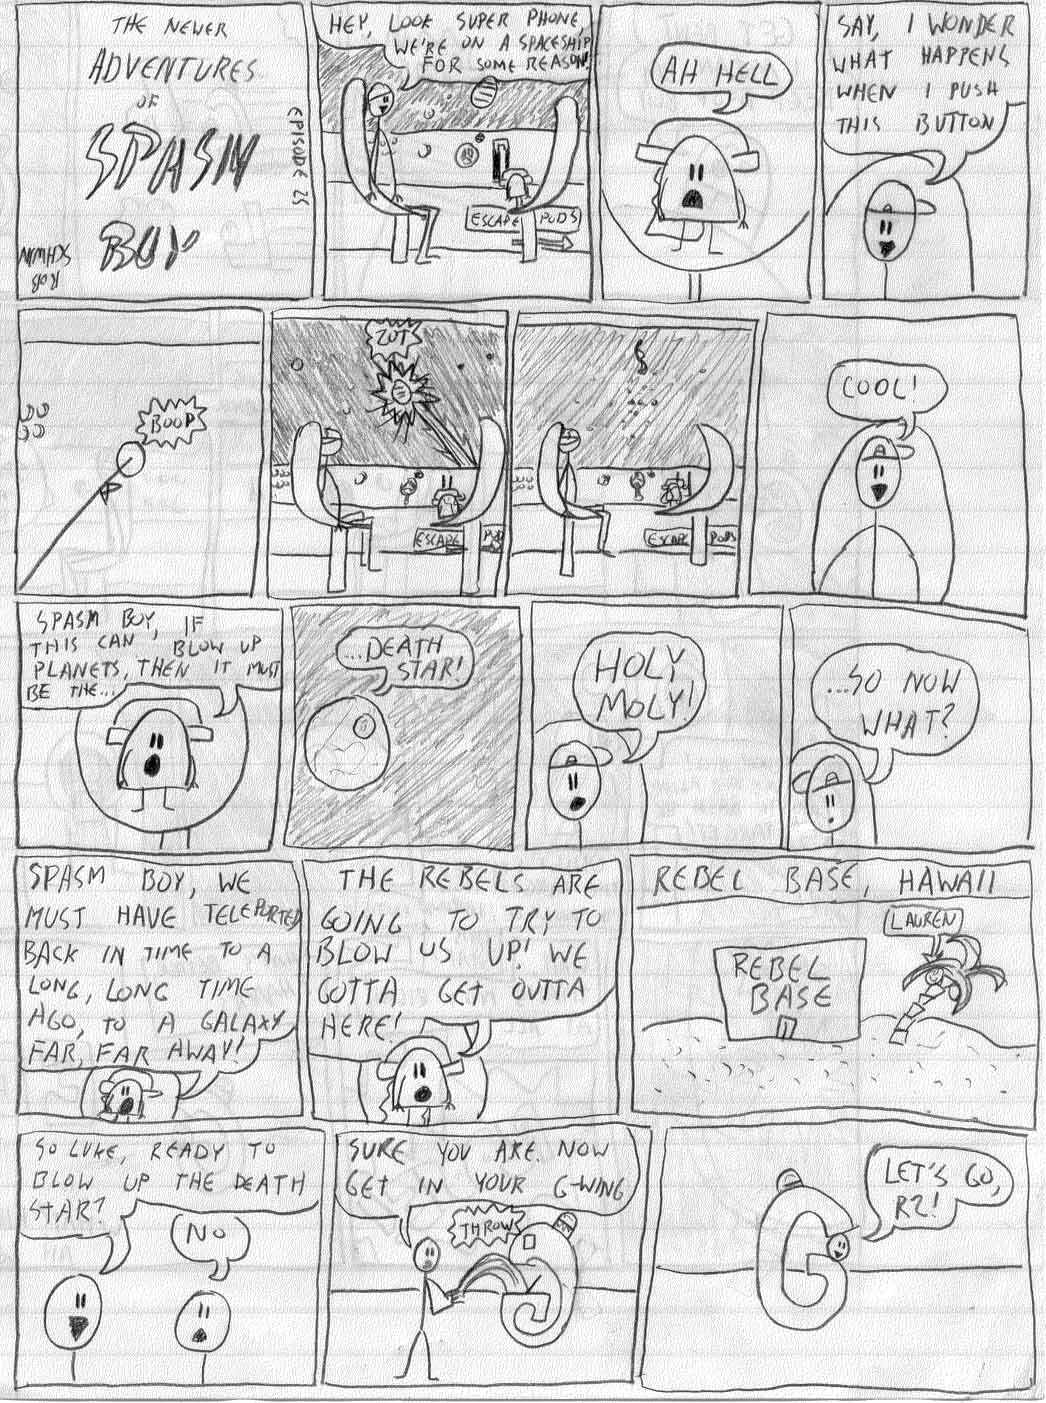 THE NEWER
ADVENTURES
OF
SPASM
BOY
EPISODE 25
ROB
SCHWIN
HEY, LOOK SUPER PHONE,
WE'RE ON A SPACESHIP
FOR SOME REASON!
ESCAPE PODS
AH HELL
SAY, I WONDER
WHAT HAPPENS
WHEN I PUSH
THIS BUTTON
BOOP
ZOT
ESCAPE PODS
ESCAPE PODS
COOL!
SPASM BOY, IF
THIS CAN BLOW UP
PLANETS, THEN IT MUST
BE THE...
...DEATH
STAR!
HOLY
MOLY!
...SO NOW
WHAT?
SPASM BOY, WE
MUST HAVE TELEPORTED
BACK IN TIME TO A
LONG, LONG TIME
AGO, TO A GALAXY
FAR, FAR AWAY!
THE REBELS ARE
GOING TO TRY TO
BLOW US UP! WE
GOTTA GET OUTTA
HERE!
REBEL BASE, HAWAII
LAUREN
REBEL
BASE
SO LUKE, READY TO
BLOW UP THE DEATH
STAR?
NO
SURE YOU ARE. NOW
GET IN YOUR G-WING
THROW
LET'S GO,
R2!